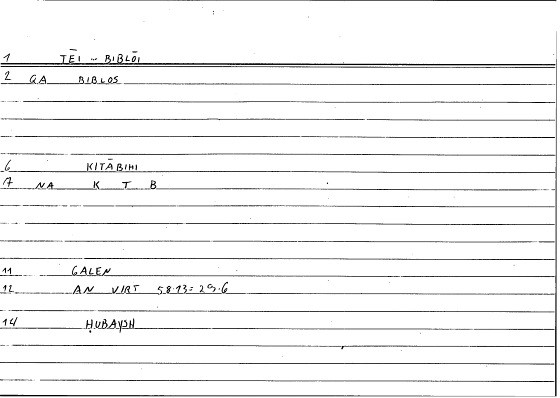 1 TĒI - BIBLŌI
2 GA BIBLOS
6 KITĀBIHI
7 NA K T B
11 GALEN
12 AN VIRT 58.13 = 29.6
14 ḤUBAYSH